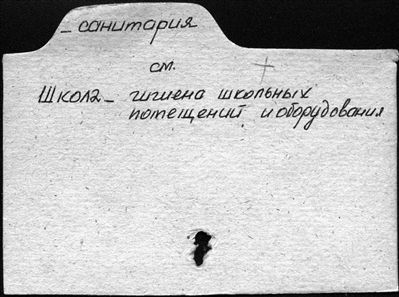 – санитария
см.
Школа – гигиена школьных
помещений и оборудования